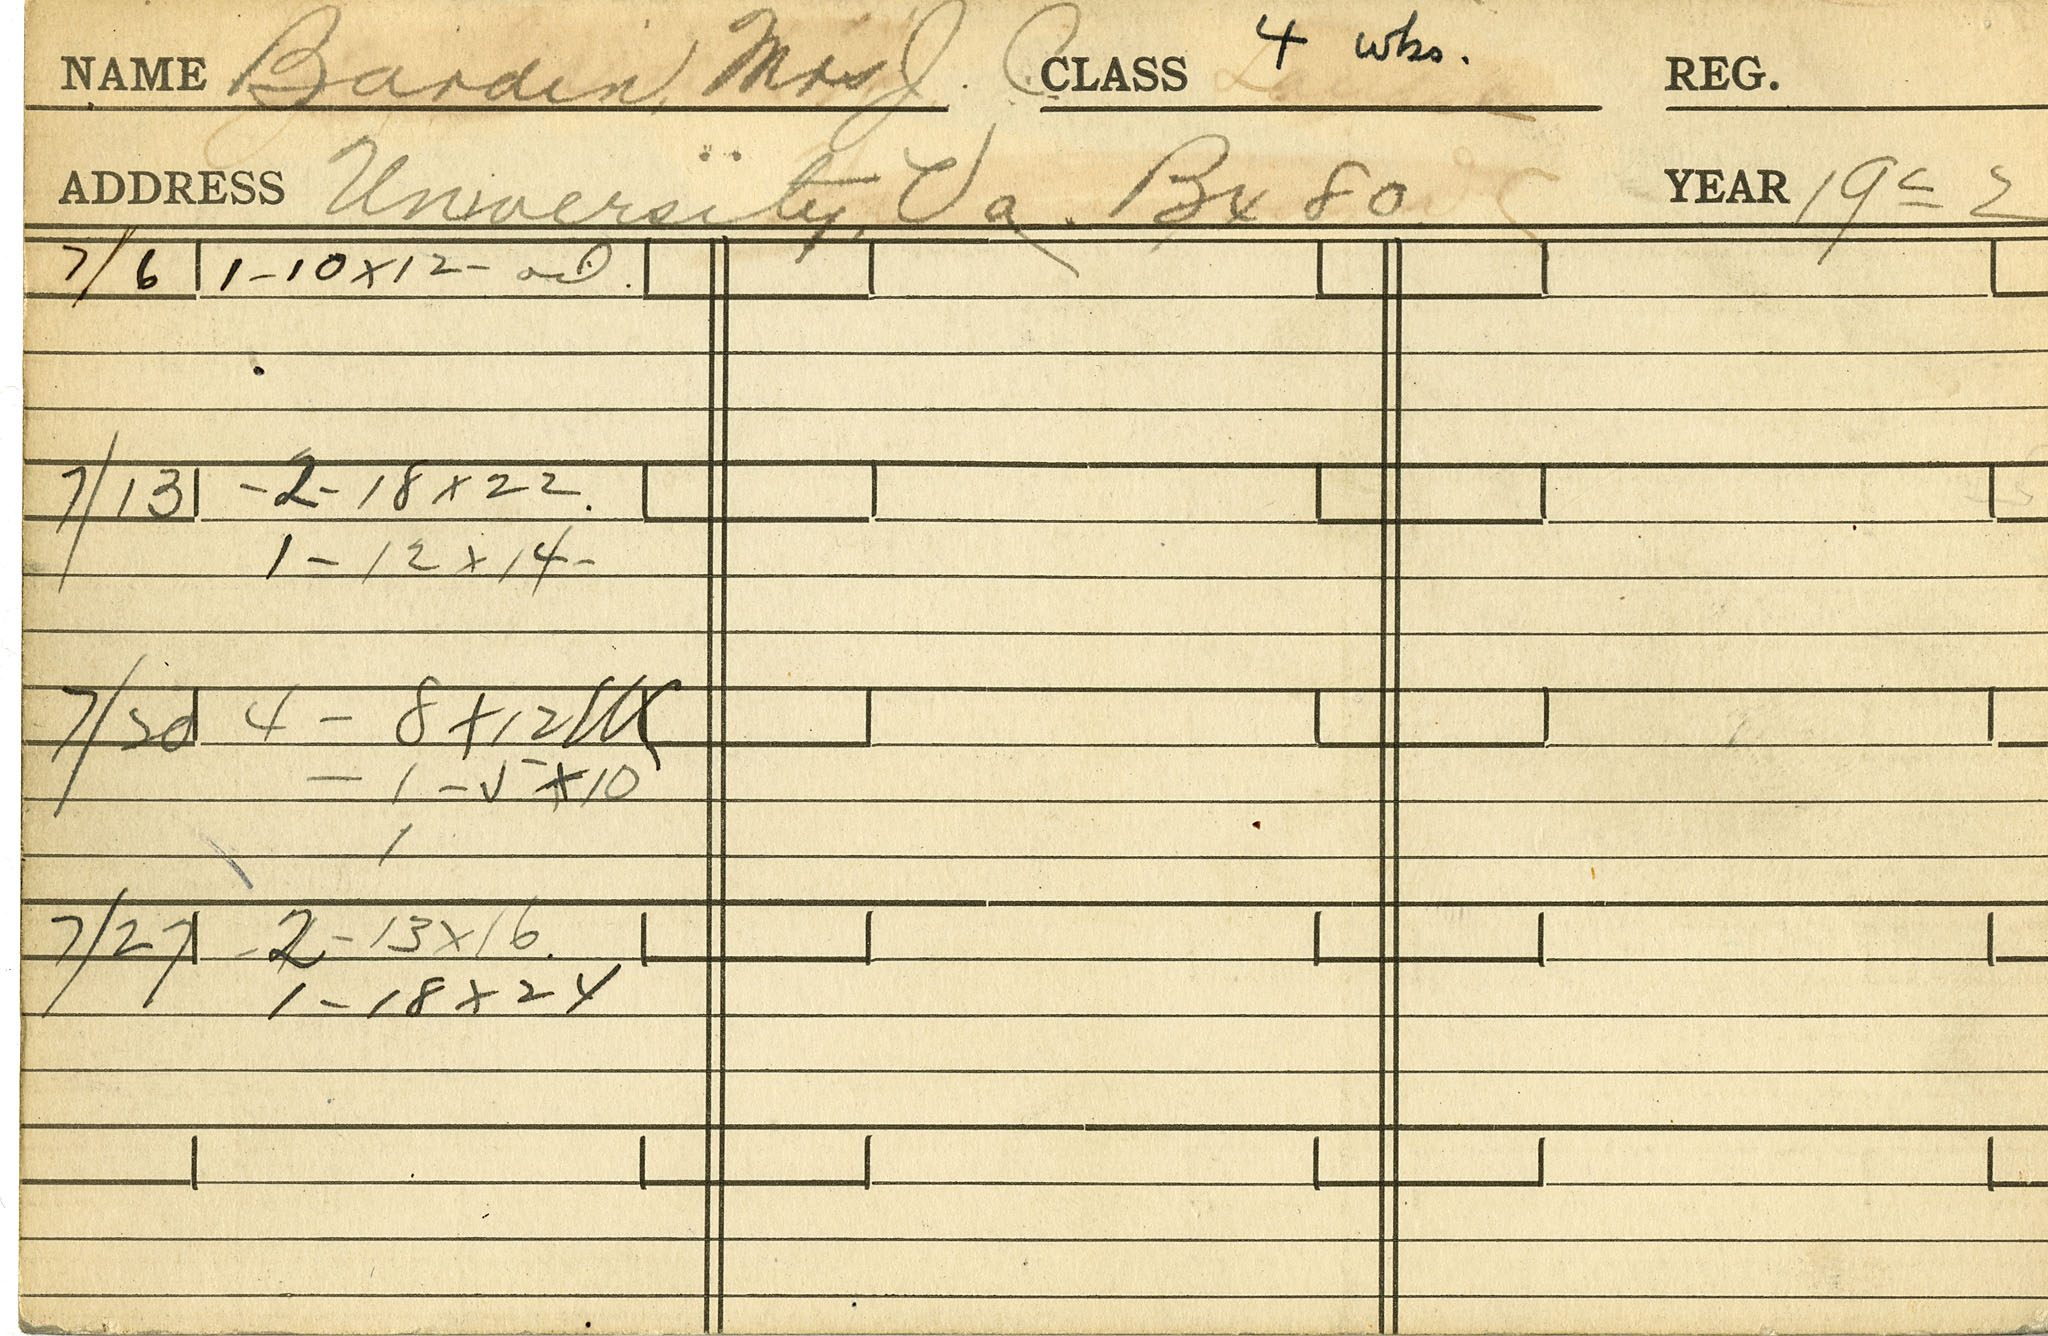 NAME Bardin, Mrs J. C. CLASS 4 wks. REG.
ADDRESS University, Va. Bx 80 YEAR
7/6 1-10x12-
7/13 -2-18x22.
1-12x14-
7/20 4 - 8x12
- 1-5x10
1
7/27 -2-13x16.
1-18x24